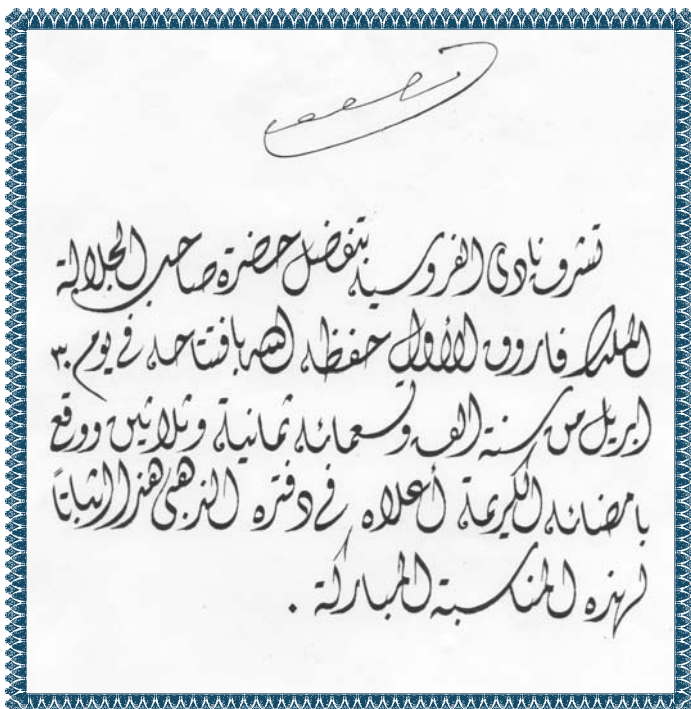 تشرف نادى الفروسية بتفضل حضرة صاحب الجلالة
الملك فاروق الأول حفظه الله بافتتاحه فى يوم ٣٠
ابريل من سنة الف وتسعمائة ثمانية وثلاثين ووقع
بامضائه الكريمة أعلاه فى دفتره الذهبى هذا اثباتاً
لهذه المناسبة المباركة .